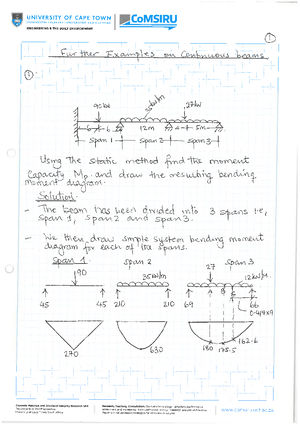 UNIVERSITY OF CAPE TOWN
CoMSIRU
ENGINEERING & THE BUILT ENVIRONMENT
1
Further Examples on Continuous beams
1
90kN
35kN/m
27kN
6 6 12m 4 5m
span 1 span 2 span 3
Using the static method find the moment
Capacity Mp and draw the resulting bending
moment diagram.
Solution:
- The beam has been divided into 3 spans i.e,
span 1, span 2 and span 3.
- We then draw simple system bending moment
diagram for each of the spans.
Span 1 span 2 span 3
90 35kN/m 27 12kN/m
45 45 210 210 69 66
0.44×9
270 630 180 175.5 162.6
www.comsiru.uct.ac.za